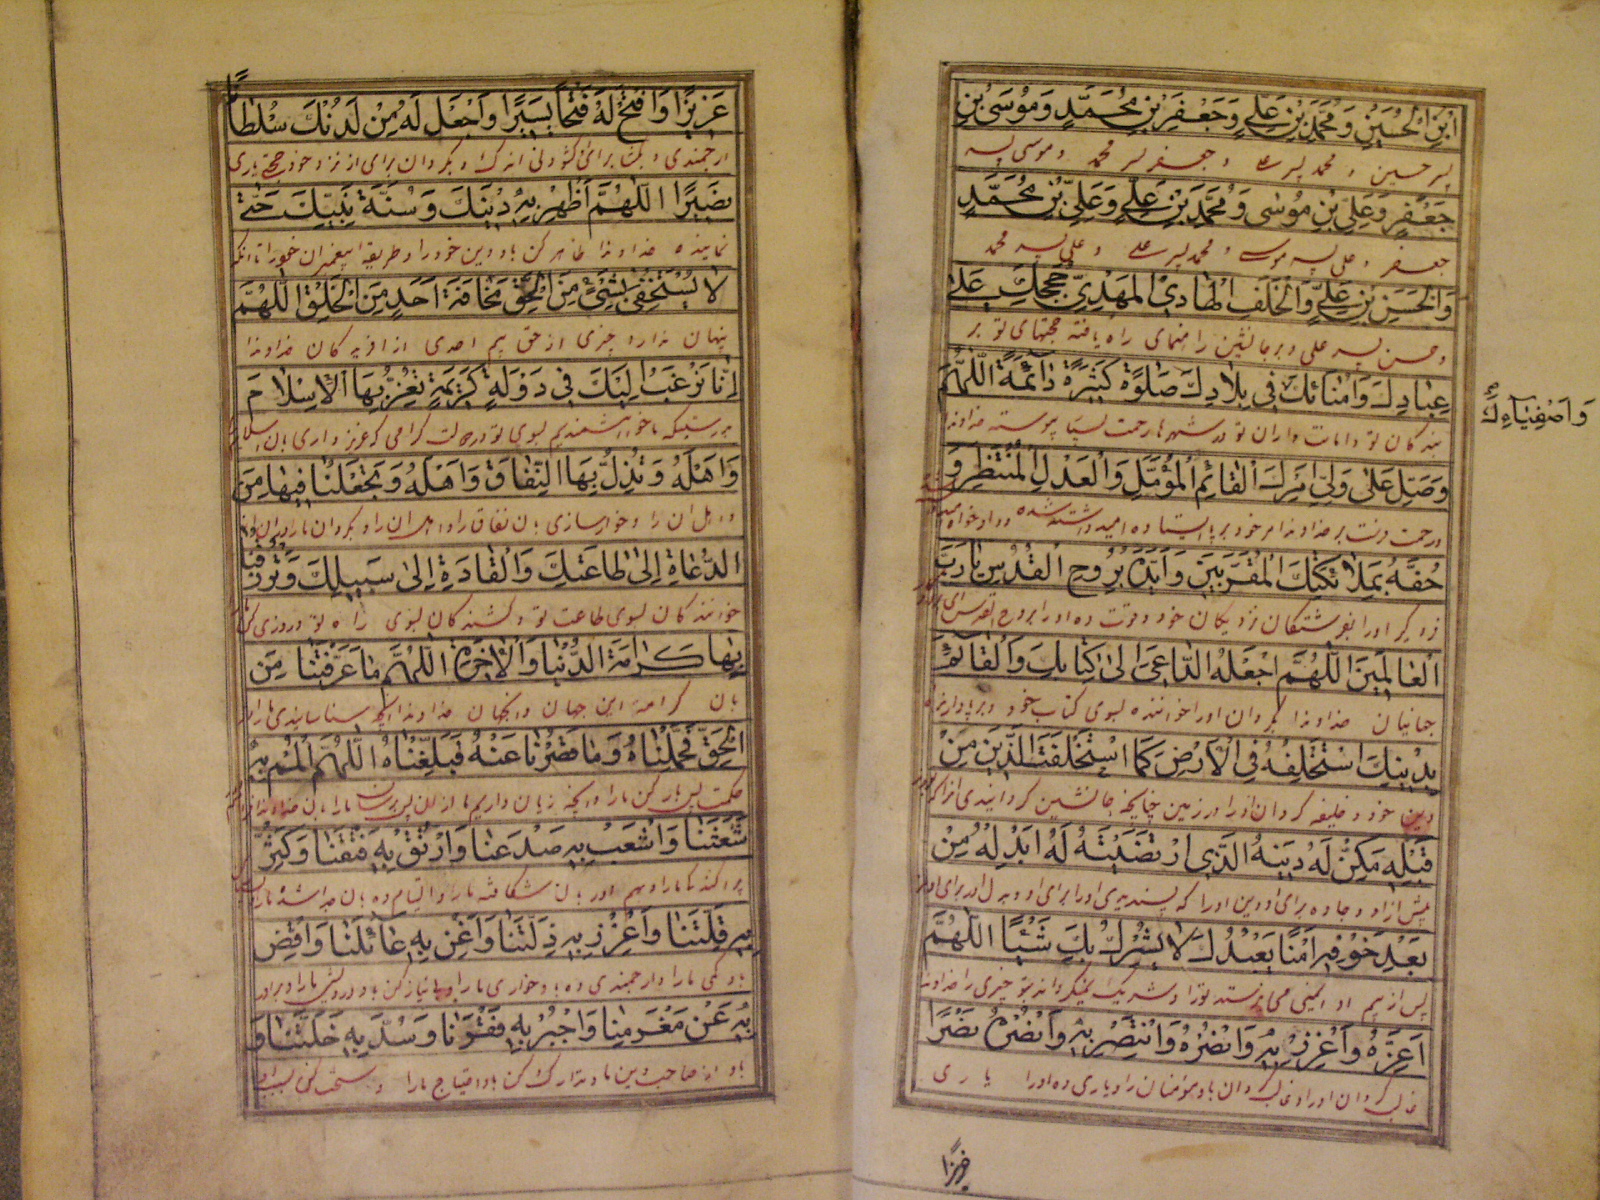 ابْنِ الْحُسَيْنِ وَمُحَمَّدِ بْنِ عَلِيٍّ وَجَعْفَرِ بْنِ مُحَمَّدٍ وَمُوسَى بْنِ
پسر حسین و محمد پسر علی و جعفر پسر محمد و موسی پسر
جَعْفَرٍ وَعَلِيِّ بْنِ مُوسٰى وَمُحَمَّدِ بْنِ عَلِيٍّ وَعَلِيِّ بْنِ مُحَمَّدٍ
جعفر و علی پسر موسی و محمد پسر علی و علی پسر محمد
وَالْحَسَنِ بْنِ عَلِيٍّ وَالْخَلَفِ الْهَادِي الْمَهْدِيِّ حُجَجِكَ عَلىٰ
و حسن پسر علی و بر جانشین راهنمای راه یافته حجتهای تو بر
عِبَادِكَ وَاُمَنَائِكَ فِي بِلَادِكَ صَلٰوةً كَثِيرَةً دَائِمَةً اَللّٰهُمَّ
وَاَصْفِيَاءِكَ
بندگان تو و امانت داران تو در شهرها رحمت بسیار پیوسته خداوندا
وَصَلِّ عَلىٰ وَلِيِّ اَمْرِكَ الْقَائِمِ الْمُؤَمَّلِ وَالْعَدْلِ الْمُنْتَظَرِ وَ
خداوند امر خود بر پا ایستاده امید داشته شده
حُفَّهُ بِمَلَائِكَتِكَ الْمُقَرَّبِينَ وَاَيِّدْهُ بِرُوحِ الْقُدُسِ يَا رَبَّ
او را بفرشتگان نزدیکان خود و قوت ده او را بروح القدس ای
الْعَالَمِينَ اَللّٰهُمَّ اجْعَلْهُ الدَّاعِيَ اِلىٰ كِتَابِكَ وَالْقَائِمَ
جهانیان خداوندا بگردان او را خواننده بسوی کتاب خود و بر پا دارنده
بِدِينِكَ اسْتَخْلِفْهُ فِي الْاَرْضِ كَمَا اسْتَخْلَفْتَ الَّذِينَ مِنْ
دین خود و خلیفه گردان او را در زمین چنانچه جانشین گردانیدی
قَبْلِهِ مَكِّنْ لَهُ دِينَهُ الَّذِي ارْتَضَيْتَهُ لَهُ اَبْدِلْهُ مِنْ
پیش از او و جا ده برای او دین او را که پسندیدی او را برای او و بدل
بَعْدِ خَوْفِهِ اَمْنًا يَعْبُدُكَ لَا يُشْرِكُ بِكَ شَيْئًا اَللّٰهُمَّ
پس از بیم او ایمنی می پرستد تو را و شریک نمیگرداند بتو چیزی را خداوندا
اَعِزَّهُ وَاَعْزِزْ بِهِ وَانْصُرْهُ وَانْتَصِرْ بِهِ وَانْصُرْهُ نَصْرًا
گردان او را و غالب گردان باو مؤمنان را و یاری ده او را یاری
عَزِيزًا وَافْتَحْ لَهُ فَتْحًا يَسِيرًا وَاجْعَلْ لَهُ مِنْ لَدُنْكَ سُلْطَانًا
ارجمندی و بگشا برای کشودنی اندک و بگردان برای از نزد خود حجت یاری
نَصِيرًا اَللّٰهُمَّ اَظْهِرْ بِهِ دِينَكَ وَسُنَّةَ نَبِيِّكَ حَتّىٰ
نماینده خداوندا ظاهر کن باو دین خود را و طریقه پیغمبران خود را تا آنکه
لَا يَسْتَخْفِيَ بِشَيْءٍ مِنَ الْحَقِّ مَخَافَةَ اَحَدٍ مِنَ الْخَلْقِ اَللّٰهُمَّ
پنهان ندارد چیزی از حق بیم احدی از آفریدگان خداوندا
اِنَّا نَرْغَبُ اِلَيْكَ فِي دَوْلَةٍ كَرِيمَةٍ تُعِزُّ بِهَا الْاِسْلَامَ
بدرستیکه ما خواهشمندیم بسوی تو در دولت گرامی که عزیز داری بآن اسلام را
وَاَهْلَهُ وَتُذِلُّ بِهَا النِّفَاقَ وَاَهْلَهُ وَتَجْعَلُنَا فِيهَا مِنَ
و اهل آن را و خوار سازی بآن نفاق را و اهل آن را و بگردان ما را در آن از
الدُّعَاةِ اِلىٰ طَاعَتِكَ وَالْقَادَةِ اِلىٰ سَبِيلِكَ وَتَرْزُقُنَا
خوانندگان بسوی طاعت تو و کشندگان بسوی راه تو و روزی کنی
بِهَا كَرَامَةَ الدُّنْيَا وَالْاٰخِرَةِ اَللّٰهُمَّ مَا عَرَّفْتَنَا مِنَ
بآن کرامت این جهان و آنجهان خداوندا آنچه شناسانیدی ما را
الْحَقِّ فَحَمِّلْنَاهُ وَمَا قَصُرْنَا عَنْهُ فَبَلِّغْنَاهُ اَللّٰهُمَّ الْمُمْ بِهِ
شَعَثَنَا وَاشْعَبْ بِهِ صَدْعَنَا وَارْتُقْ بِهِ فَتْقَنَا وَكَثِّرْ
بِهِ قِلَّتَنَا وَاَعْزِزْ بِهِ ذِلَّتَنَا وَاَغْنِ بِهِ عَائِلَنَا وَاقْضِ
باو کمی ما را و ارجمندی ده باو خواری ما را و بی نیاز کن باو درویش ما را
بِهِ عَنْ مَغْرَمِنَا وَاجْبُرْ بِهِ فَقْرَنَا وَسُدَّ بِهِ خَلَّتَنَا وَ